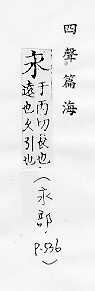 四聲篇海
永
于丙切長也
遠也又引也
(永部 P.536)